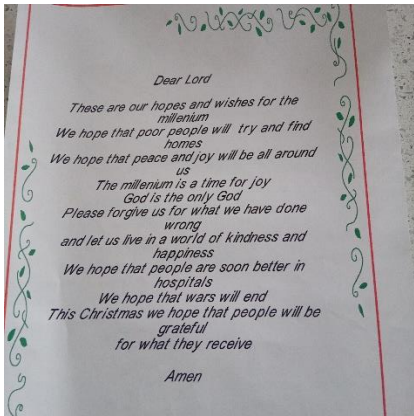 Dear Lord
These are our hopes and wishes for the
millenium
We hope that poor people will try and find
homes
We hope that peace and joy will be all around
us
The millenium is a time for joy
God is the only God
Please forgive us for what we have done
wrong
and let us live in a world of kindness and
happiness
We hope that people are soon better in
hospitals
We hope that wars will end
This Christmas we hope that people will be
grateful
for what they receive
Amen